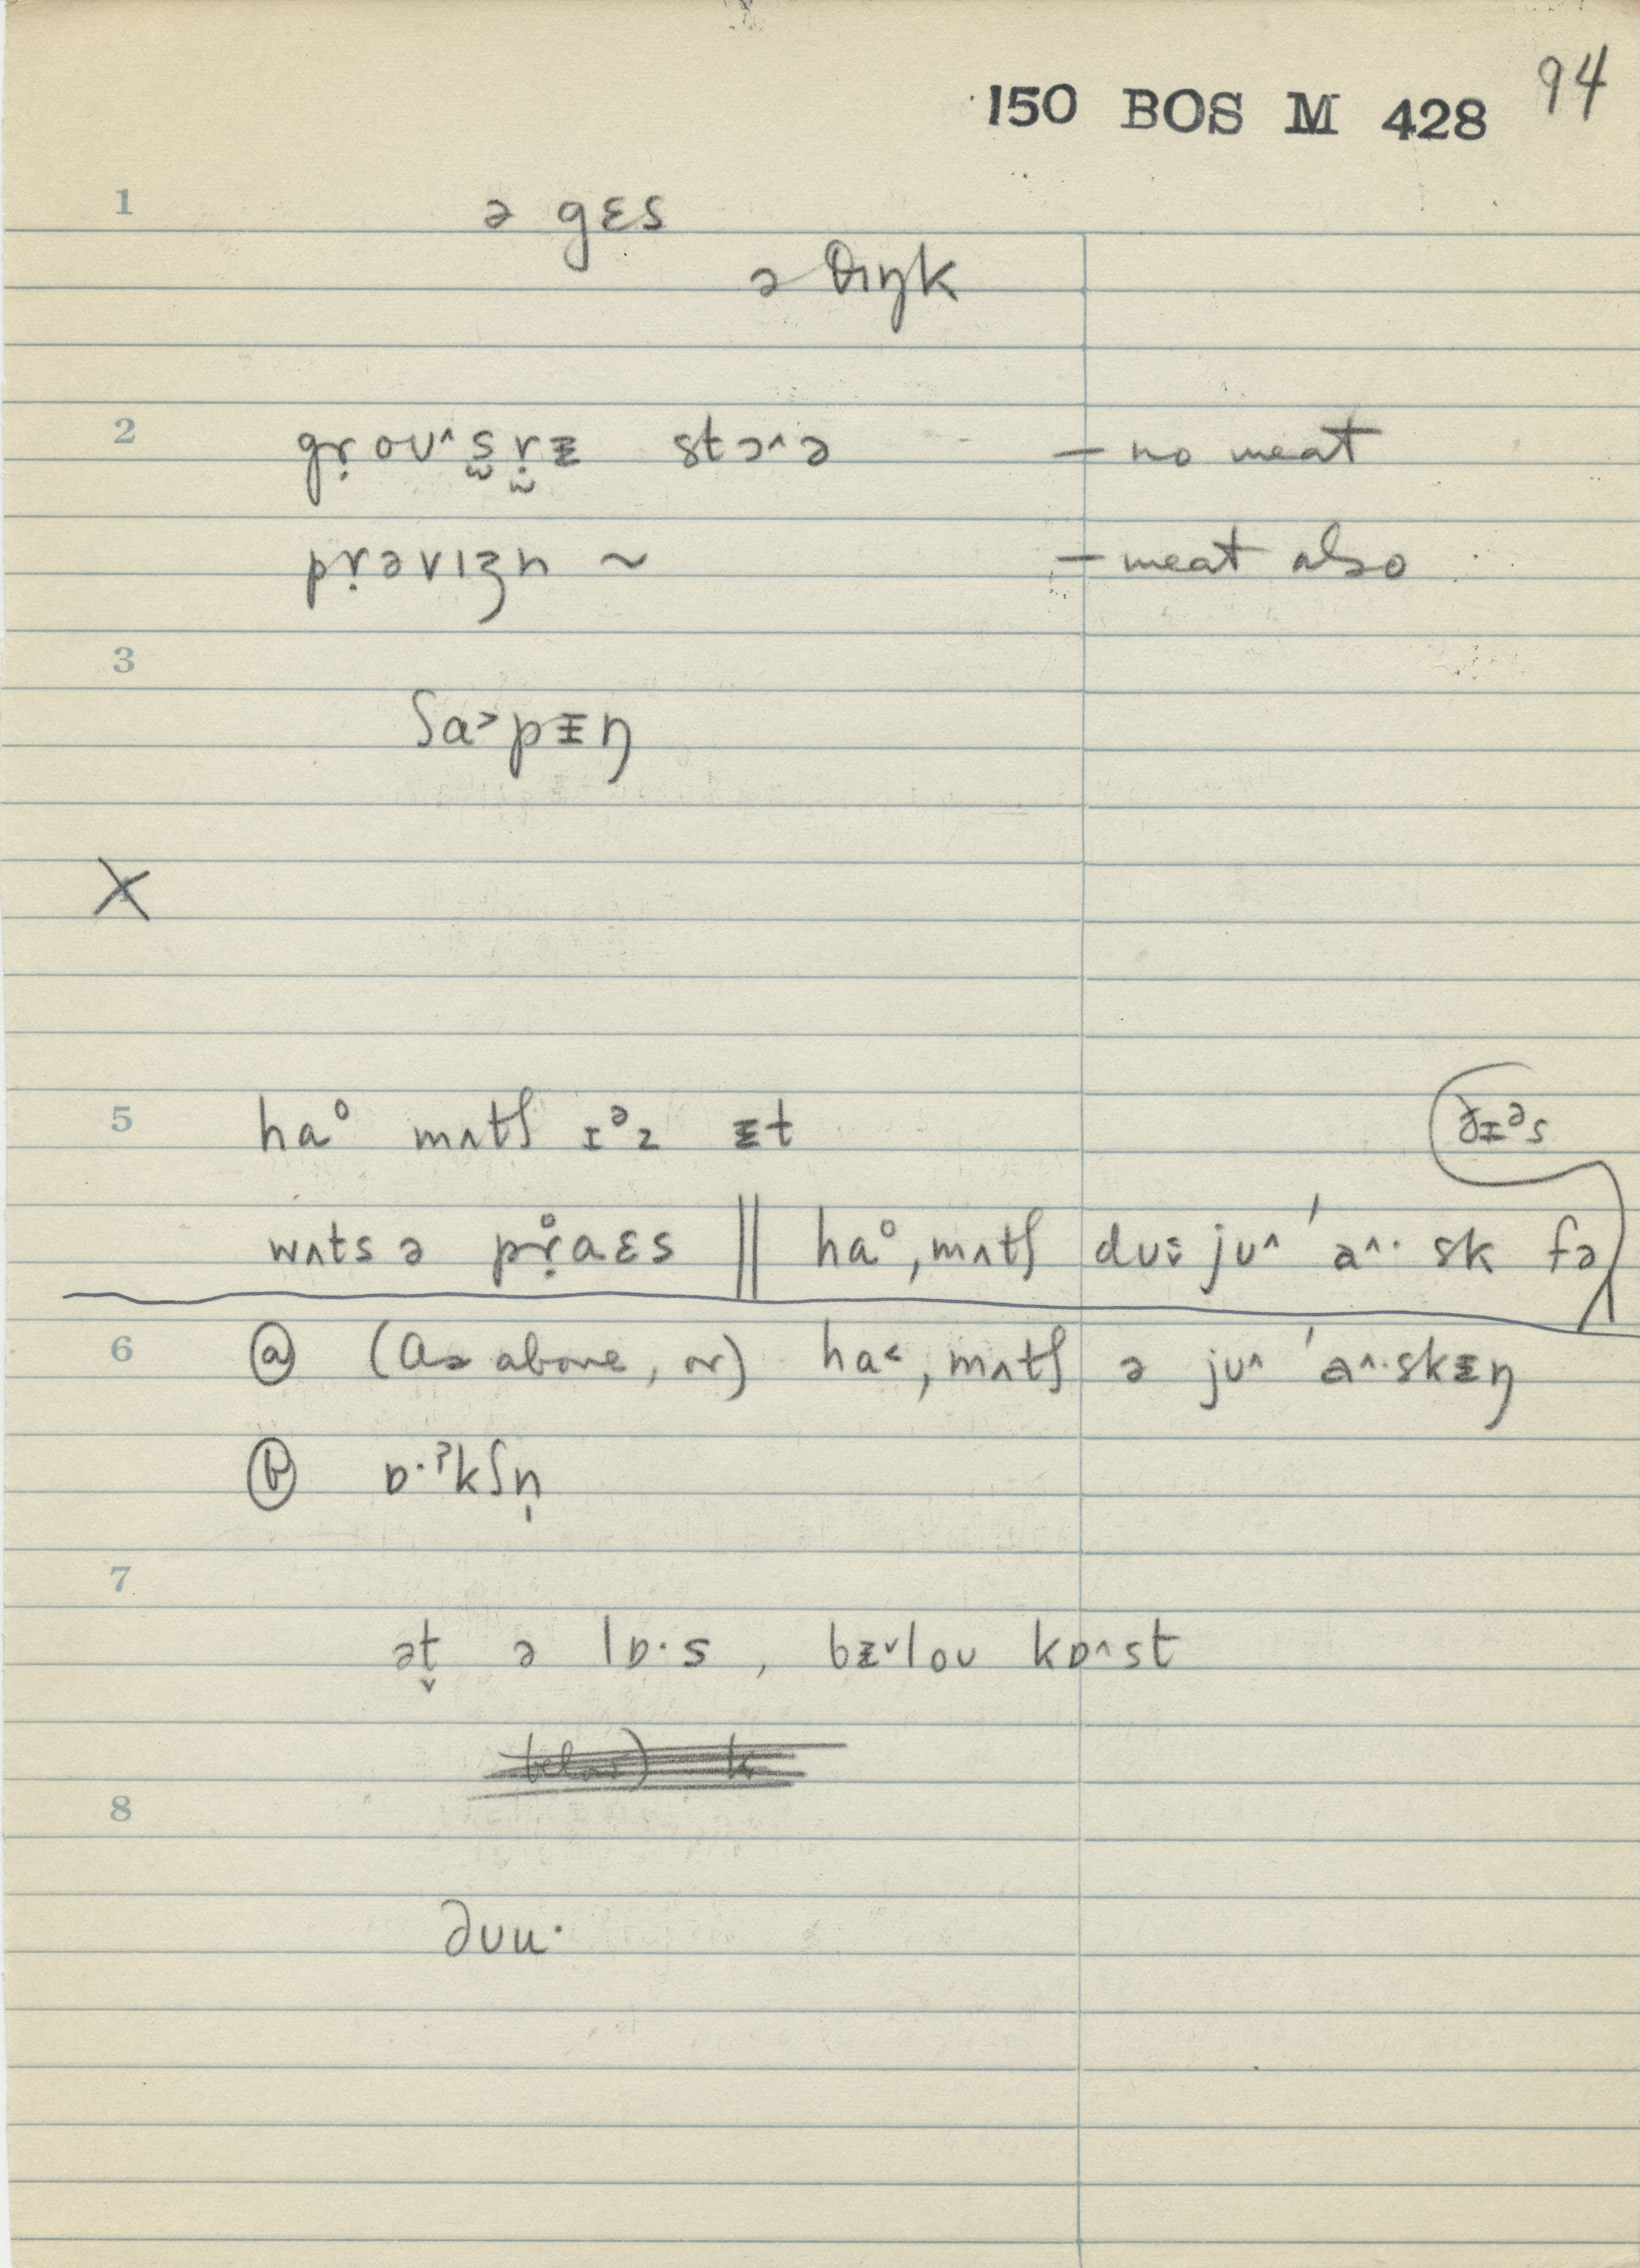 150 BOS M 428 94
1 ə gɛs
ə θɪŋk
2 gṛoʊ^s̬ṛɪ̵ stɔ^ə – no meat
pṛəvɪʒn ~ – meat also
3 ʃa˃pɪ̵ŋ
5 ha° mʌtʃ ɪᵊz ɪ̵t ðɪ̵ᵊs
wʌts ə pṛ̊aɛs || ha°, mʌtʃ dʊɪ̵ jʊ^ 'a^· sk fə
6 ⓐ (as above, or) ha˂, mʌtʃ ə jʊ^ 'a^·skɪ̵ŋ
ⓑ ɒ·ˀkʃn̩
7
ət̬ ə lɒ·s , bɪ̵ˇloʊ kɒ^st
8
ðʊu·